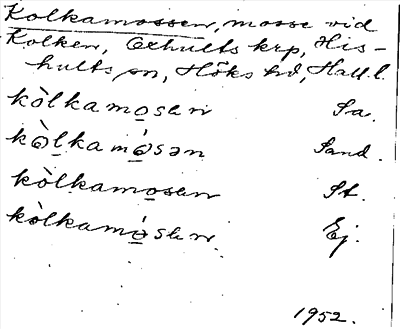 Kolkamossen, mosse vid
Kolken, Oxhults krp, His-
hults sn, Höks hd, Hall. l.
kòlkamo̲sen Sa.
kò̲lkamó̲sən Sand.
kòlkamo̲sen St.
kòlkamó̲sen Ej.
1952.